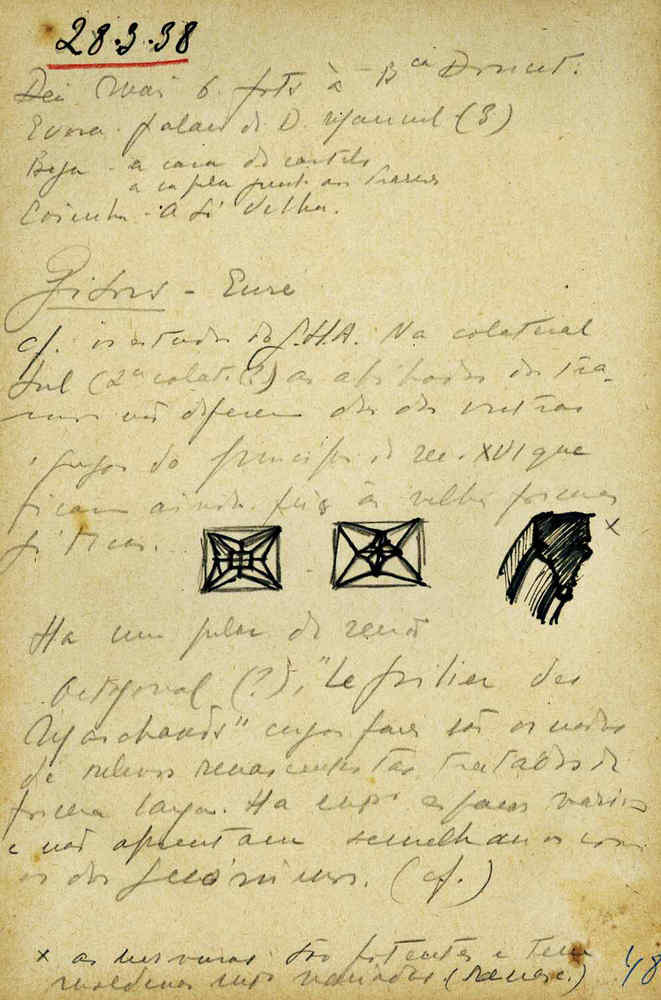 28.3.38
Dei mais 6 fots à Bca Doucet:
Evora - palacio de D. Manuel (3)
Beja - a casa do castelo
a capela junto aos
Coimbra - A Sé Velha.
Gisors - Eure
cf. os estudos da S.H.A. Na colateral
Sul (2ª colat. (?)) as abobadas dos tra-
mos não diferem das das outras
do principio do sec. XVI que
ficam ainda fieis às velhas formas
góticas...
x
Ha um pilar de secção
octogonal (?), "Le pilier des
Marchands" cujas faces são ornadas
de relevos renascentistas tratados de
forma larga. Ha espaços vazios
e não apresentam semelhanças com
os dos Jerónimos. (cf.)
x as nervuras são potentes e tem
molduras mto variadas (Renasc.)
48